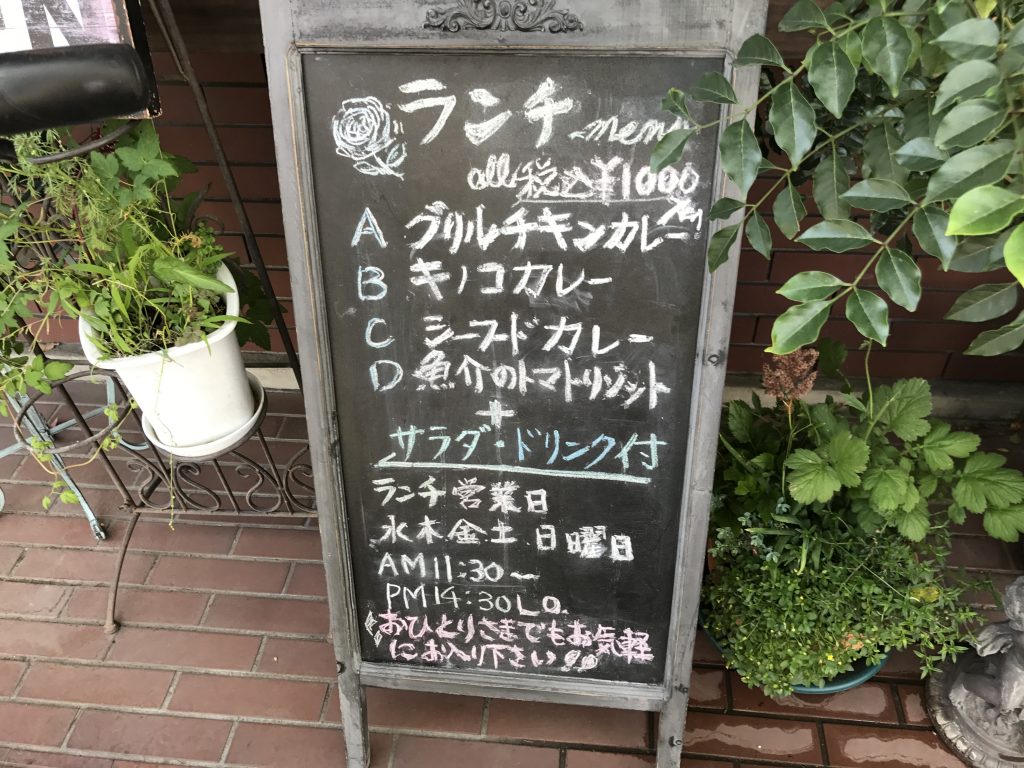 ランチ menu
all 税込¥1000
A グリルチキンカレー
B キノコカレー
C シーフードカレー
D 魚介のトマトリゾット
+
サラダ・ドリンク付
ランチ営業日
水木金土日曜日
AM11:30〜
PM14:30L.O.
おひとりさまでもお気軽
にお入り下さい!!